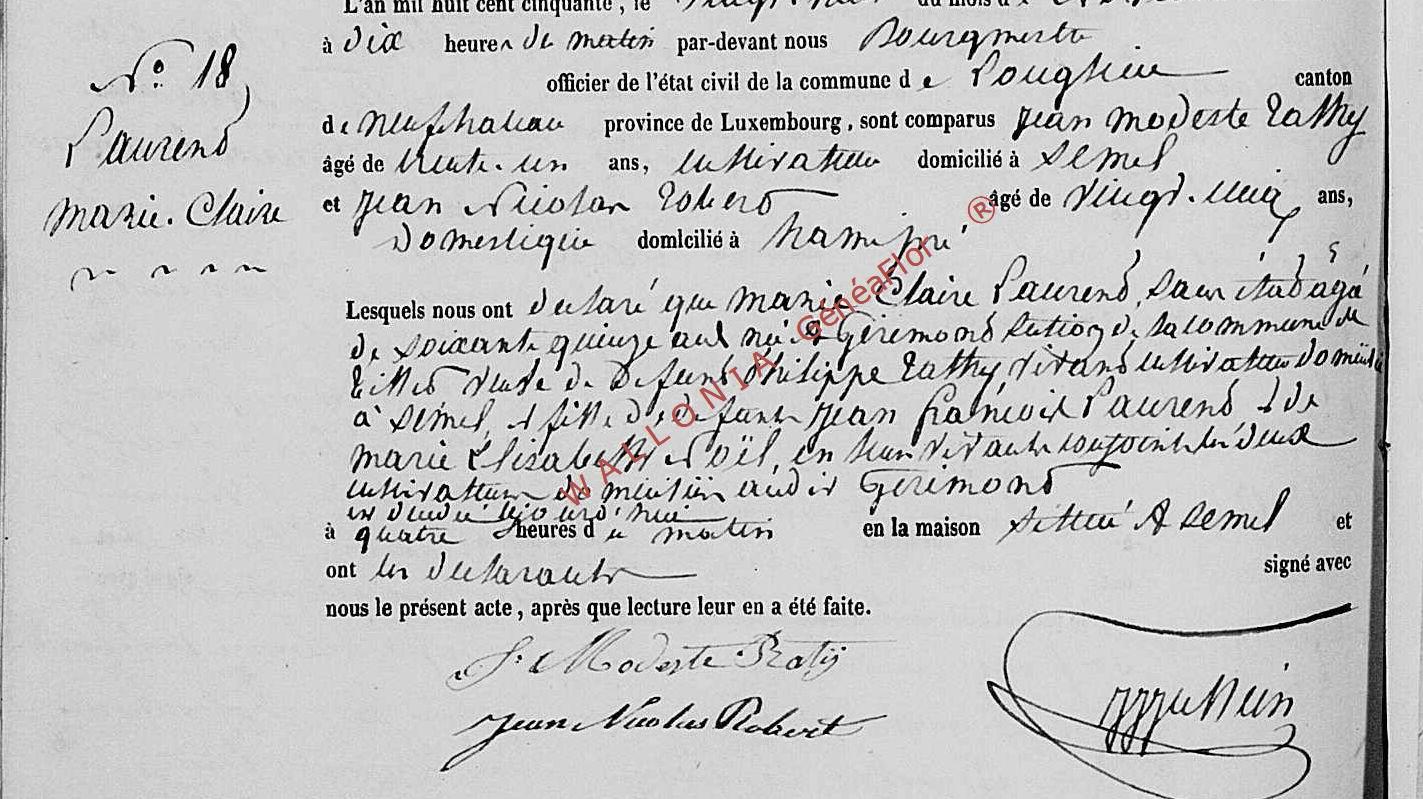 L'an mil huit cent cinquante, le du mois d
N.º 18
Laurend
Marie-Claire
à dix heures du matin par-devant nous Bourgmestre
officier de l'état civil de la commune de Longlier canton
de neufchateau province de Luxembourg, sont comparus jean modeste
âgé de trente-un ans, cultivateur domicilié à Semel
et jean Nicolas Robert âgé de vingt-cinq ans,
Domestique domicilié à hamipré
Lesquels nous ont declaré que marie Claire Laurend, sans état agé
de soixante quinze ans né à Gérimond section de la commune de
veuve de defunt Philippe vivant cultivateur domicilié
à Semel, et fille de defunt jean françois Laurend et de
marie Elisabeth Noël, en leur vivant conjoint les deux
cultivateurs domicilié audit Gérimond
est decedé aujourd'hui
à quatre heures du matin en la maison située A Semel et
ont les declarants signé avec
nous le présent acte, après que lecture leur en a été faite.
J. Modeste
Jean Nicolas Robert
WALLONIA GénéaFlor ®